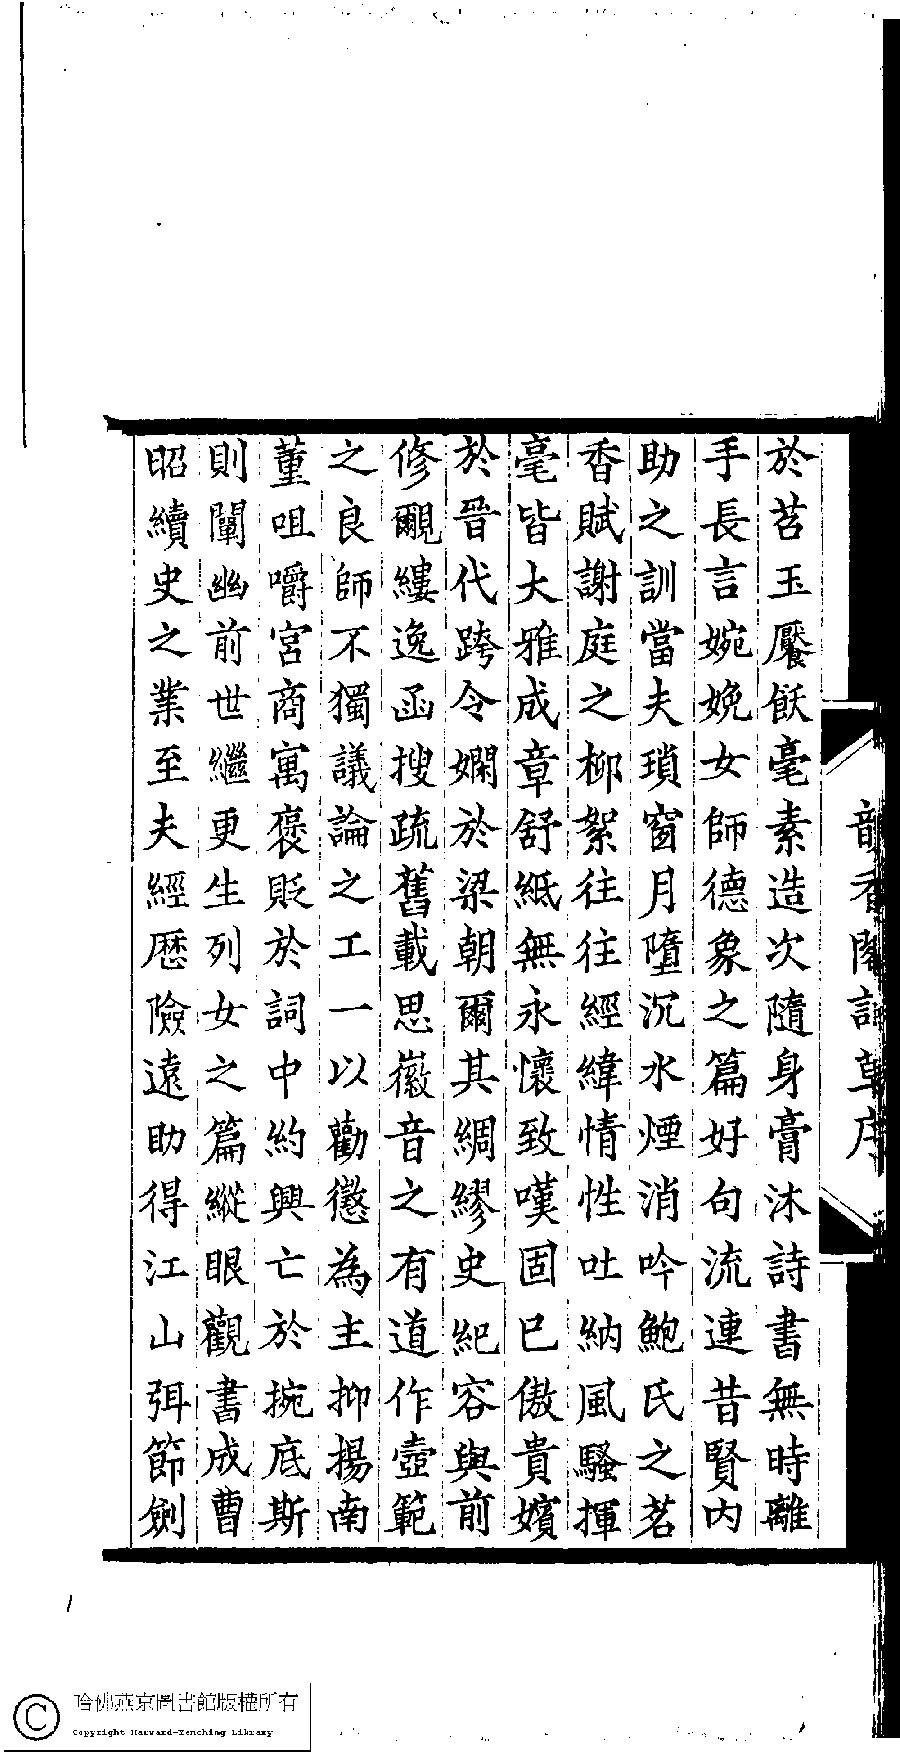 於苕玉饜飫毫素造次隨身膏沐詩書無時離
手長言婉娩女師德象之篇好句流連昔賢内
助之訓當夫瑣窗月墮沉水煙消吟鮑氏之茗
香賦謝庭之柳絮往往經緯情性吐納風騷揮
毫皆大雅成章舒紙無永懷致嘆固已傲貴嬪
於晉代跨令嫻於梁朝爾其綢繆史紀容與前
修覼縷逸函搜疏舊載思徽音之有道作壼範
之良師不獨議論之工一以勸懲為主抑揚南
董咀嚼宮商寓褒貶於詞中約興亡於掜底斯
則闡幽前世繼更生列女之篇縱眼觀書成曹
昭續史之業至夫經歴險遠助得江山弭節劍
韻香閣詩草序
哈佛燕京圖書館版權所有
Copyright Harvard-Yenching Library